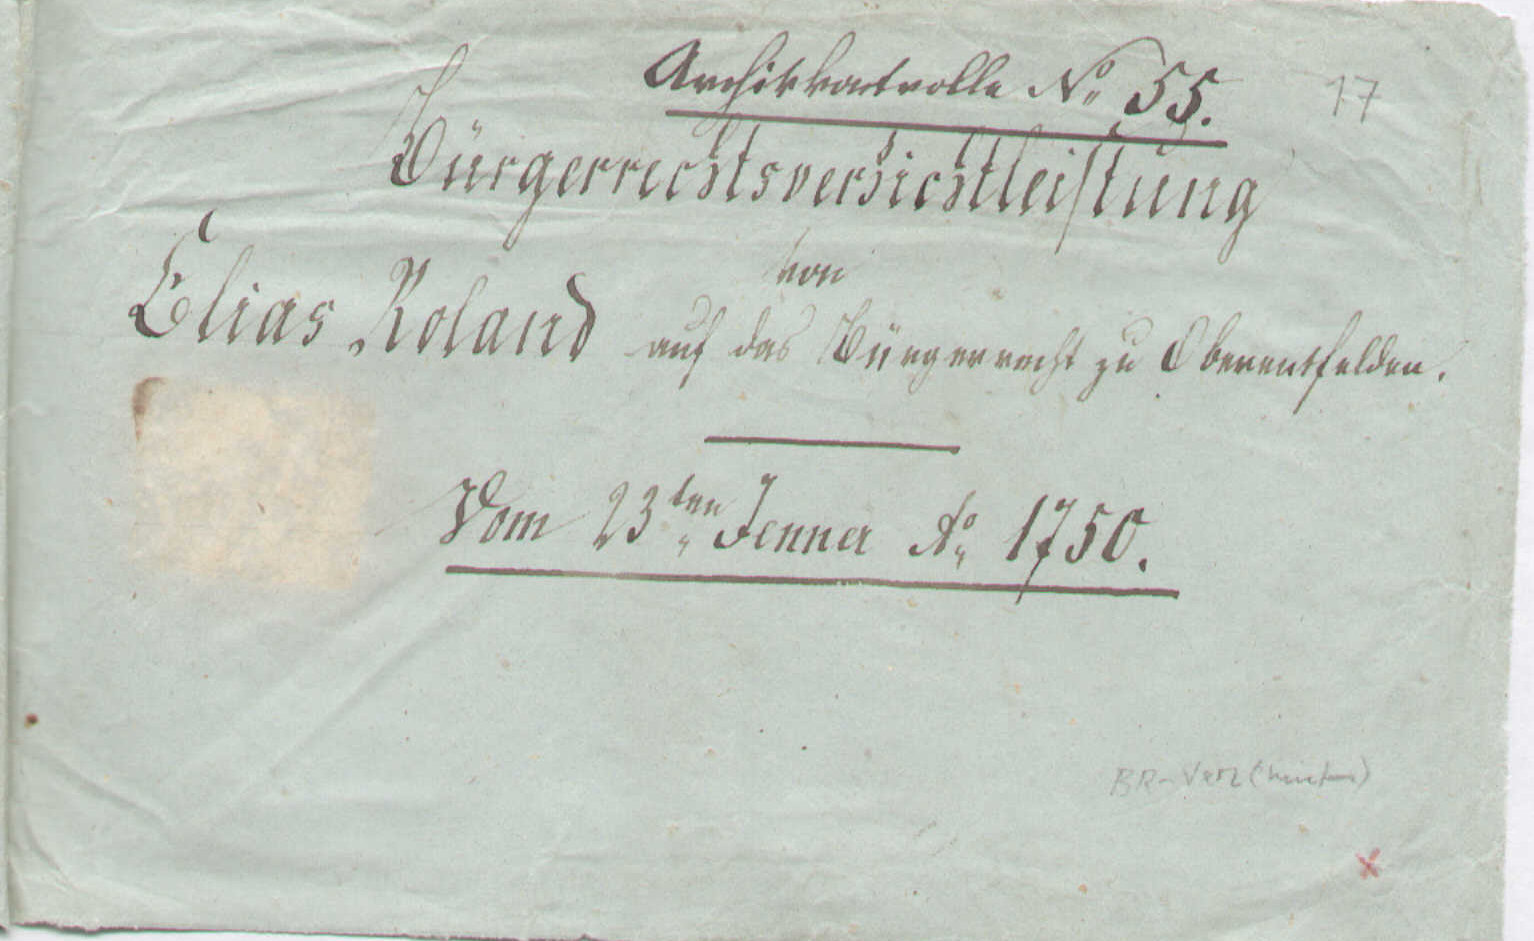 Archivkontrolle No 55.
17
Bürgerrechtsverzichtleistung
von
Elias Roland auf das Bürgerrecht zu Oberentfelden.
Vom 23ten Jenner Ao 1750.
BR-Verz